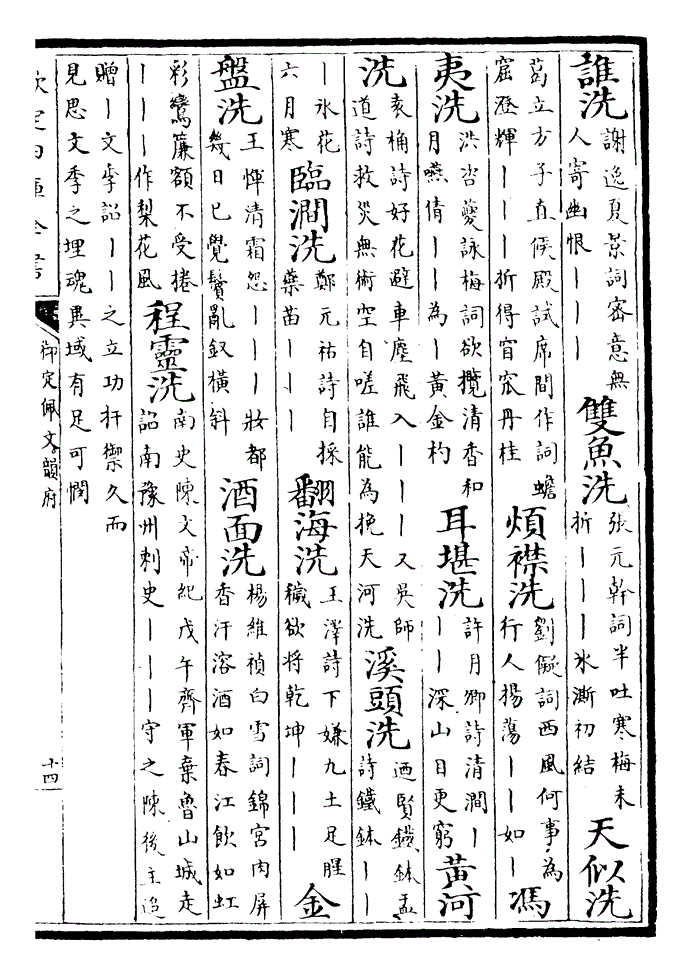 誰洗
謝逸夏景詞密意無
人寄幽恨丨丨丨
雙魚洗
張元幹詞半吐寒梅未
折丨丨丨氷澌初結
天似洗
葛立方子直候殿試席間作詞蟾
窟澄輝丨丨丨折得官窠丹桂
煩襟洗
劉儗詞西風何事為
行人掃蕩丨丨如丨
馮
夷洗
洪咨夔詠梅詞欲攬清香和
月嚥倩丨丨為丨黃金杓
耳堪洗
許月卿詩清澗丨
丨丨深山目更窮
黃河
洗
袁桷詩好花避車塵飛入丨丨丨又吳師
道詩救災無術空自嗟誰能為挽天河洗
溪頭洗
迺賢鐵鉢盂
詩鐵鉢丨丨
丨氷花
六月寒
臨澗洗
鄭元祐詩自採
藥苗丨丨丨
翻海洗
王澤詩下嫌九土足腥
穢欲將乾坤丨丨丨
金
盤洗
王惲清霜怨丨丨丨丨妝都
幾日已覺鬢亂釵橫斜
酒面洗
楊維禎白雪詞錦宮肉屏
香汗溶酒如春江飲如虹
彩鸞簾額不受捲
丨丨丨作梨花風
程靈洗
南史陳文帝紀戊午齊軍棄魯山城走
詔南豫州刺史丨丨丨守之陳後主追
贈丨文季詔丨丨之立功扞禦久而
見思文季之埋魂異域有足可憫
欽定四庫全書
御定佩文韻府
十四